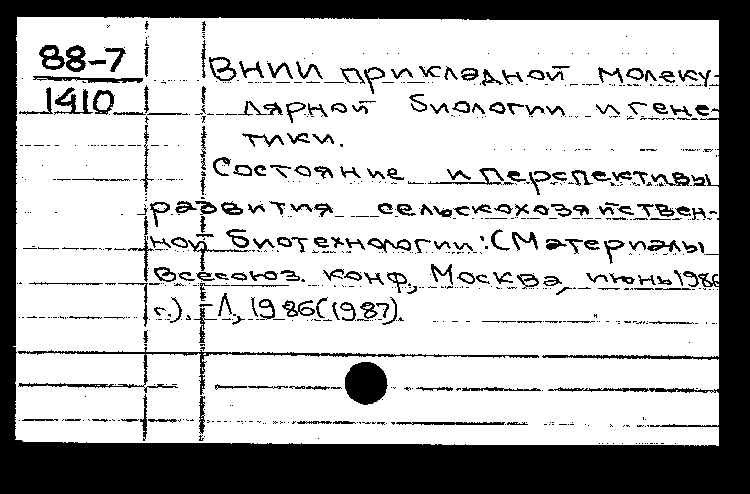 88-7
1410
ВНИИ прикладной молеку-
лярной биологии и гене-
тики.
Состояние и перспективы
развития сельскохозяйствен-
ной биотехнологии: (Материалы
Всесоюз. конф., Москва, июнь 1986
г.). - Л, 1986(1987).